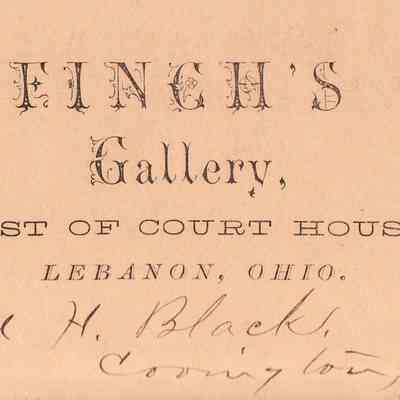 FINCH'S
Gallery,
ST OF COURT HOUS
LEBANON, OHIO.
H. Black.
Covington,